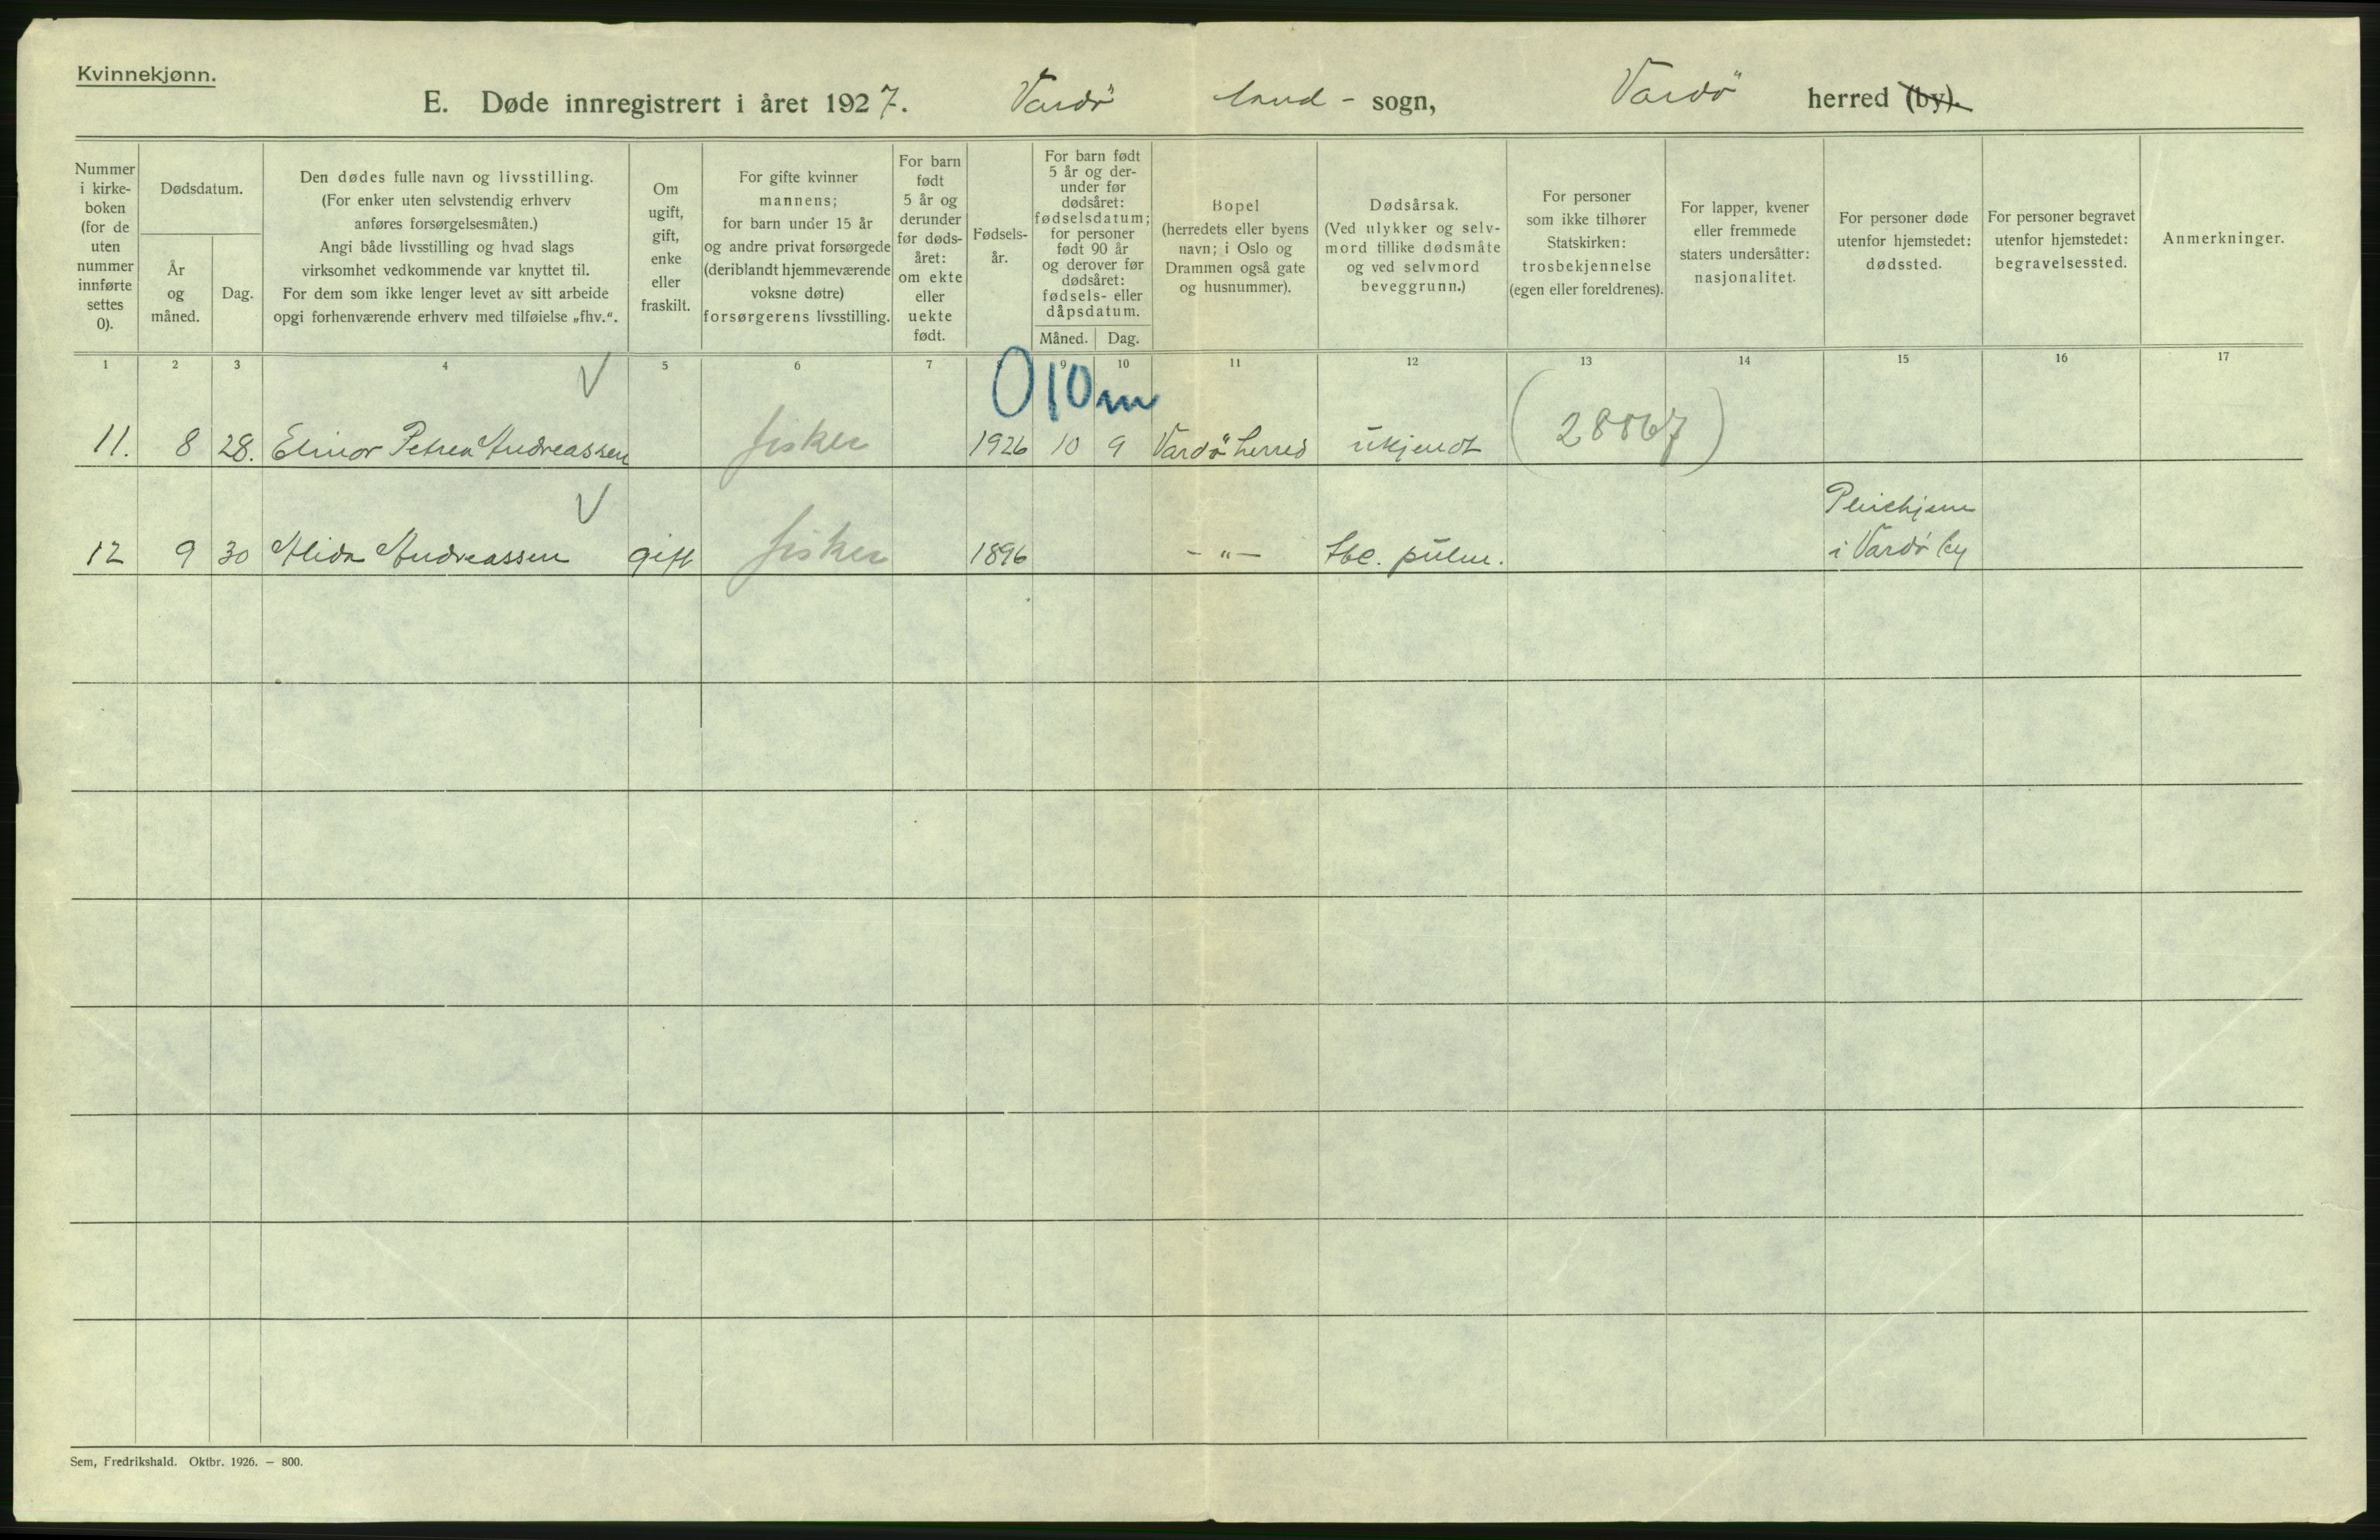 Kvinnekjønn.
E. Døde innregistrert i året 1927. Vardö land - sogn, Vardö herred (by).
Nummer
i kirke-
boken
(for de
uten
nummer
innførte
settes
0).
Dødsdatum.
År
og
måned.
Dag.
Den dødes fulle navn og livsstilling.
(For enker uten selvstendig erhverv
anføres forsørgelsesmåten.)
Angi både livsstilling og hvad slags
virksomhet vedkommende var knyttet til.
For dem som ikke lenger levet av sitt arbeide
opgi forhenværende erhverv med tilføielse „fhv.“.
Om
ugift,
gift,
enke
eller
fraskilt.
For gifte kvinner
mannens;
for barn under 15 år
og andre privat forsørgede
(deriblandt hjemmeværende
voksne døtre)
forsørgerens livsstilling.
For barn
født
5 år og
derunder
før døds-
året:
om ekte
eller
uekte
født.
Fødsels-
år.
For barn født
5 år og der-
under før
dødsåret:
fødselsdatum;
for personer
født 90 år
og derover før
dødsåret:
fødsels- eller
dåpsdatum.
Måned. Dag.
Bopel
(herredets eller byens
navn; i Oslo og
Drammen også gate
og husnummer).
Dødsårsak.
(Ved ulykker og selv-
mord tillike dødsmåte
og ved selvmord
beveggrunn.)
For personer
som ikke tilhører
Statskirken:
trosbekjennelse
(egen eller foreldrenes).
For lapper, kvener
eller fremmede
staters undersåtter:
nasjonalitet.
For personer døde
utenfor hjemstedet:
dødssted.
For personer begravet
utenfor hjemstedet:
begravelsessted.
Anmerkninger.
1 2 3 4 5 6 7 9 10 11 12 13 14 15 16 17
0 10 m
11. 8 28. Elinor Petrea Andreassen fisker 1926 10 9 Vardö herred ukjendt (28867)
Pleiehjem
12 9 30 Alida Andreassen gift fisker 1896 - " - tbc. pulm. i Vardö by
Sem, Fredrikshald. Oktbr. 1926. — 800.